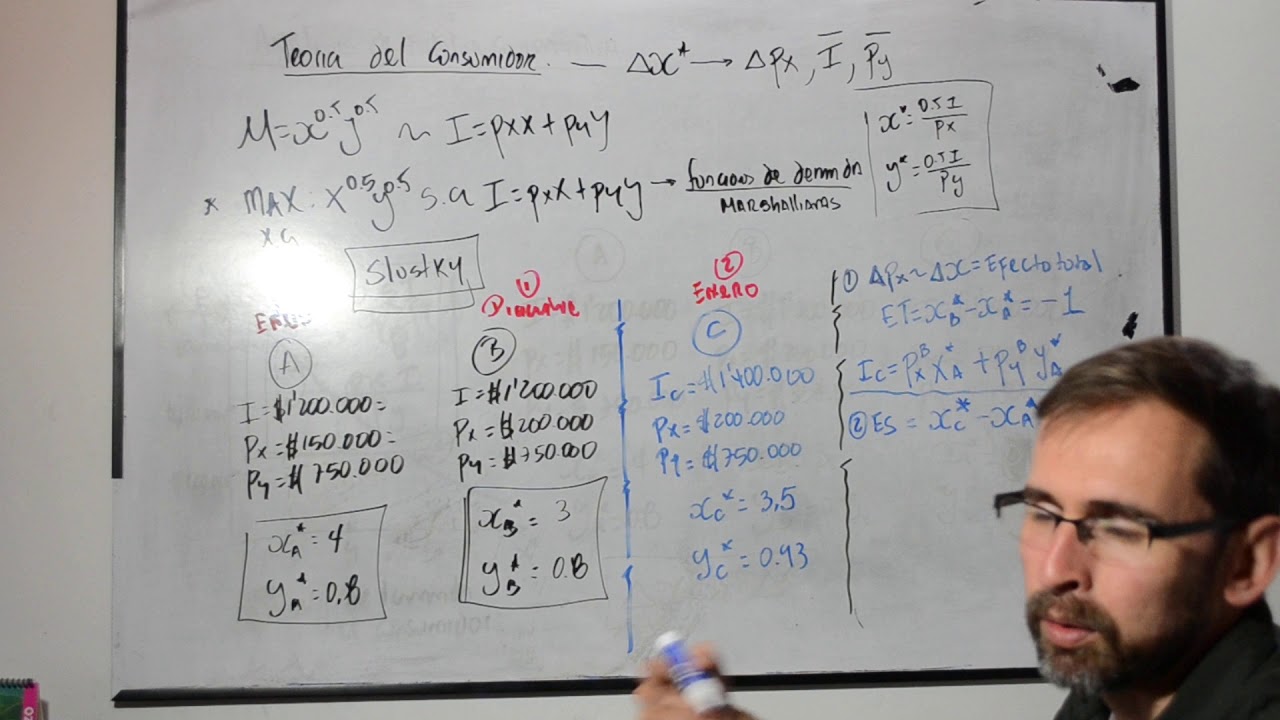 Teoria del Consumidor. — Δx* → Δpx, I̅, P̅y
M=x^0.5 y^0.5 ~ I=pxx+pyy
x*=0.5I/px
y*=0.5I/Py
* MAX: x^0.5 y^0.5 s.a I=pxX+pyy →
MARSHALLIANAS
Slustky
①
Diciembre
②
ENERO
A
I=$1'200.000=
Px=$150.000=
Py=$750.000
xA*=4
yA*=0,8
B
I=$1'200.000
Px=$200.000
Py=$750.000
xB*=3
yB*=0.8
C
Ic=$1'400.000
Px=$200.000
Py=$750.000
xc*=3,5
yc*=0.93
① ΔPx~Δx=Efecto total.
ET=xB*-xA*=-1
Ic=px^B xA*+py^B yA*
② ES = xc*-xA*